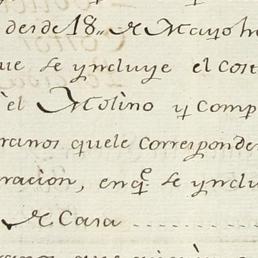 desde 18„ de Mayo h
ue se yncluye el Cost
el Molino y Comp
ranos quele corresponde
racion, enq.e se ynclu
de Casa